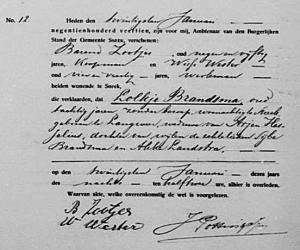 No. 12.
Heden den twintigsten Januari
negentienhonderd veertien, zijn voor mij, Ambtenaar van den Burgerlijken
Stand der Gemeente SNEEK, verschenen:
Barend Zootjes, oud negen en vijftig
jaren, Koopman en Wiep Wester
oud vier en veertig jaren, werkman
beiden wonende te Sneek,
die verklaarden, dat Lolkje Brandsma, oud
tachtig jaren, zonder beroep, woonachtig te Sneek
geboren te weduwe van Arjen Hes-
selius, dochter van wijlen de echtelieden Egbe
Brandsma en Landstra.
op den twintigsten Januari dezes jaars
des nachts te half twee ure, alhier is overleden.
Waarvan akte, welke overeenkomstig de wet is voorgelezen.
B Zootjes
W Wester